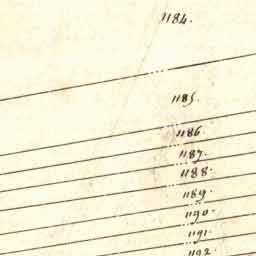 1184.
1185.
1186.
1187.
1188.
1189.
1190.
1191.
1192.